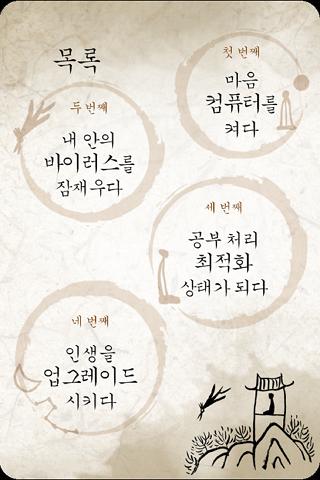 목록
첫 번째
마음
컴퓨터를
켜다
두 번째
내 안의
바이러스를
잠재우다
세 번째
공부 처리
최적화
상태가 되다
네 번째
인생을
업그레이드
시키다